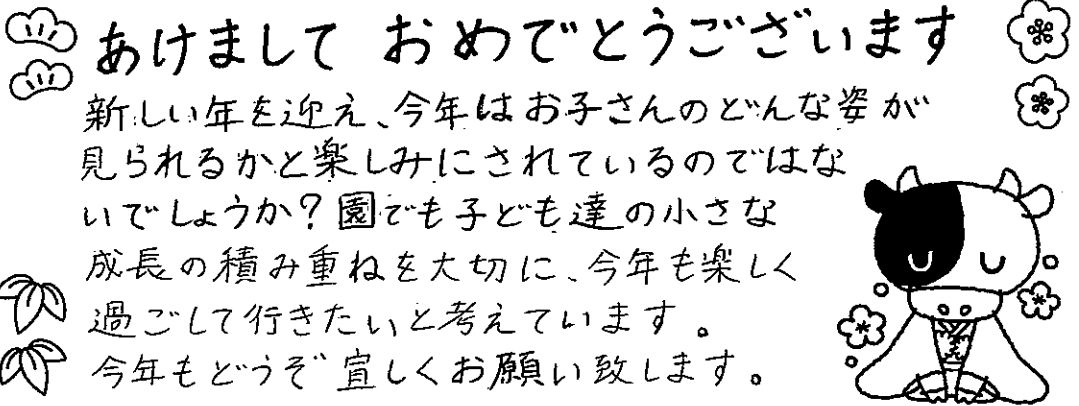 あけまして おめでとうございます
新しい年を迎え、今年はお子さんのどんな姿が
見られるかと楽しみにされているのではな
いでしょうか？園でも子ども達の小さな
成長の積み重ねを大切に、今年も楽しく
過ごして行きたいと考えています。
今年もどうぞ宜しくお願い致します。